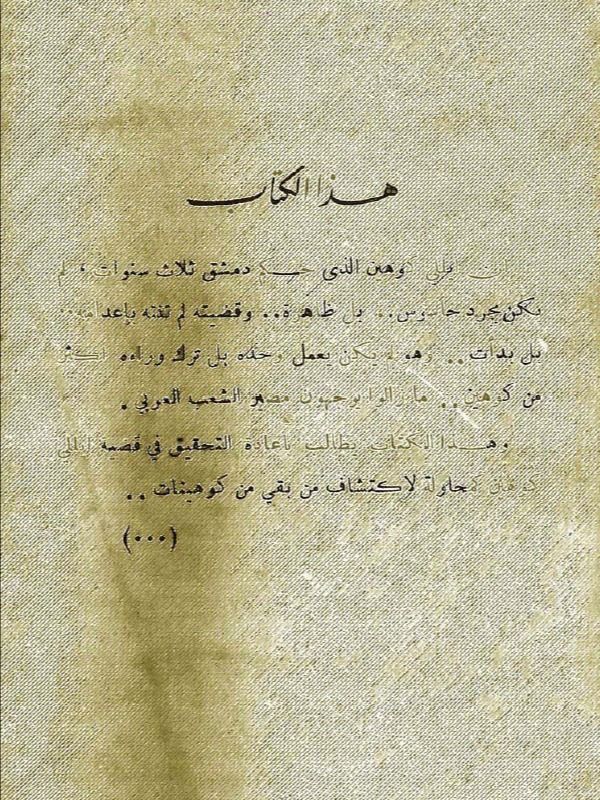 هذا الكتاب
ان ايلي كوهين الذي حكم دمشق ثلاث سنوات ، لم
يكن مجرد جاسوس .. بل ظاهرة .. وقضيته لم تنته بإعدامه ..
بل بدأت .. وهو لم يكن يعمل وحده بل ترك وراءه اكثر
من كوهين .. ما زالوا يوجهون مصير الشعب العربي .
وهذا الكتاب يطالب باعادة التحقيق في قضية ايلي
كوهين كمحاولة لاكتشاف من بقي من كوهينات ..
(٠٠٠)